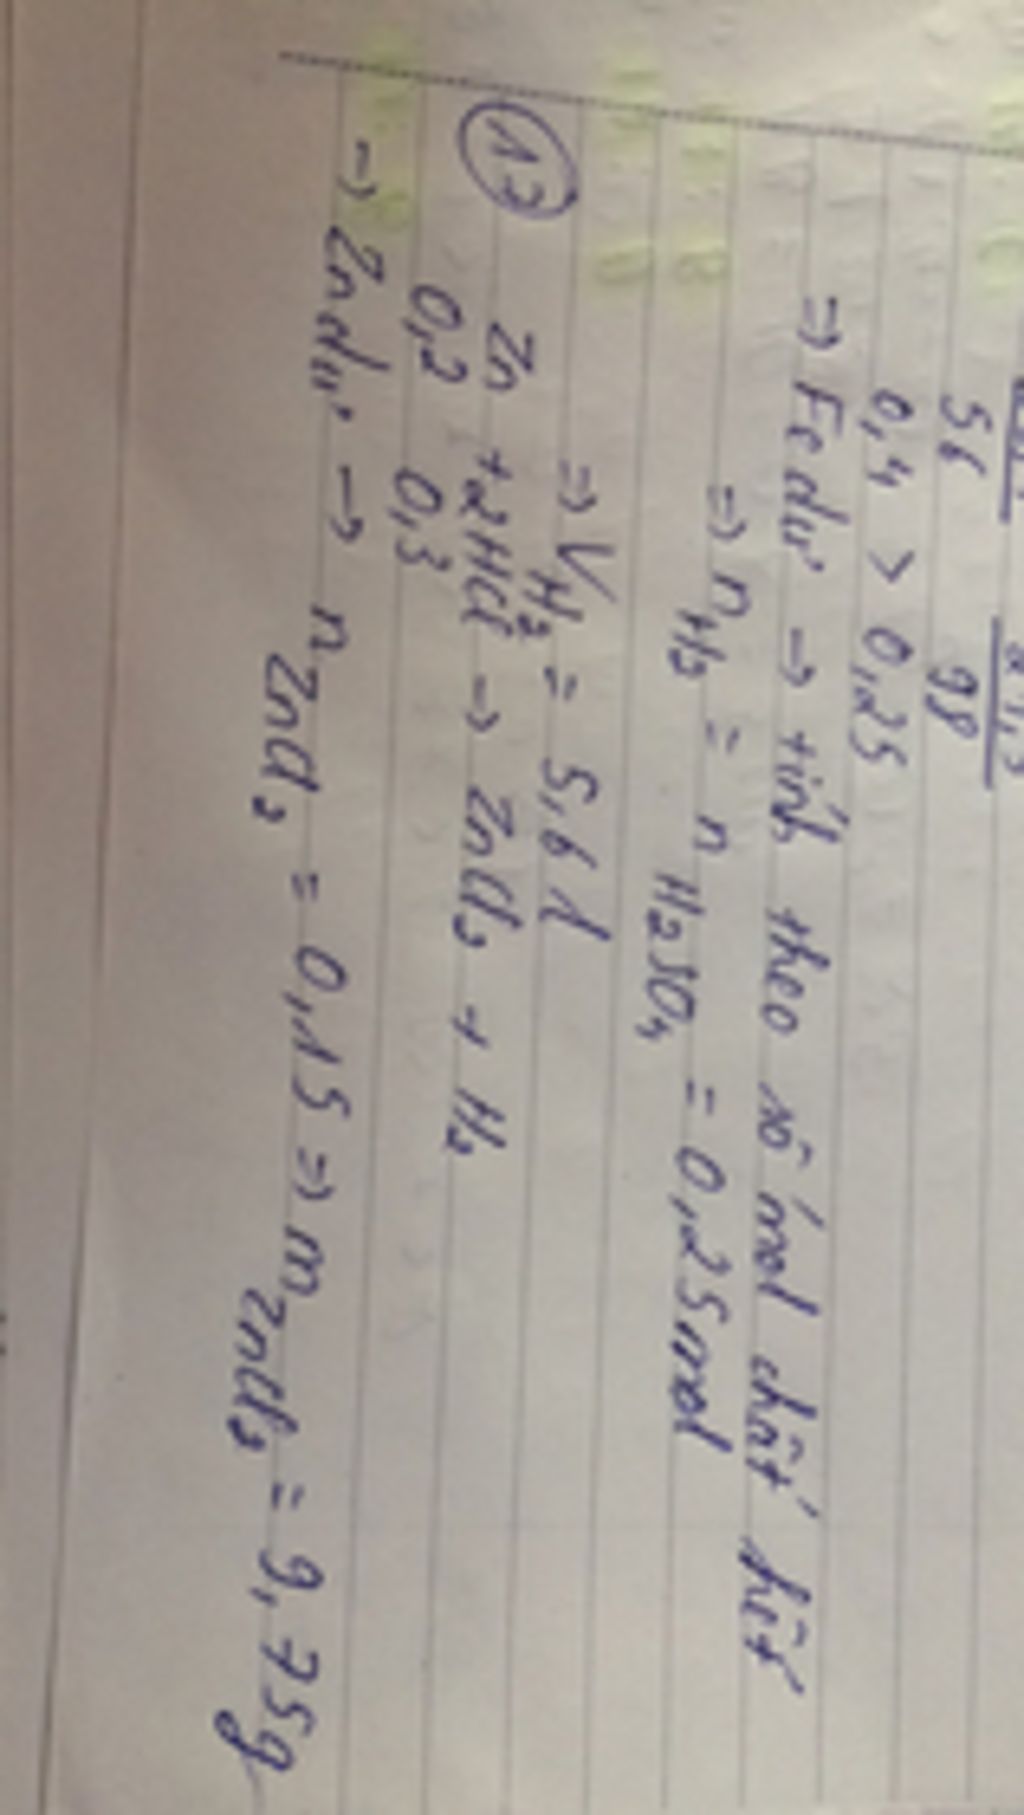 56 98
0,4 > 0,25
=> Fe dư -> tính theo số mol chất hết
=> nH₂ = nH₂SO₄ = 0,25mol
=> VH₂ = 5,6 l
13 Zn + 2HCl -> ZnCl₂ + H₂
0,2 0,3
-> Zn dư -> nZnCl₂ = 0,15 => mZnCl₂ = 9,75g